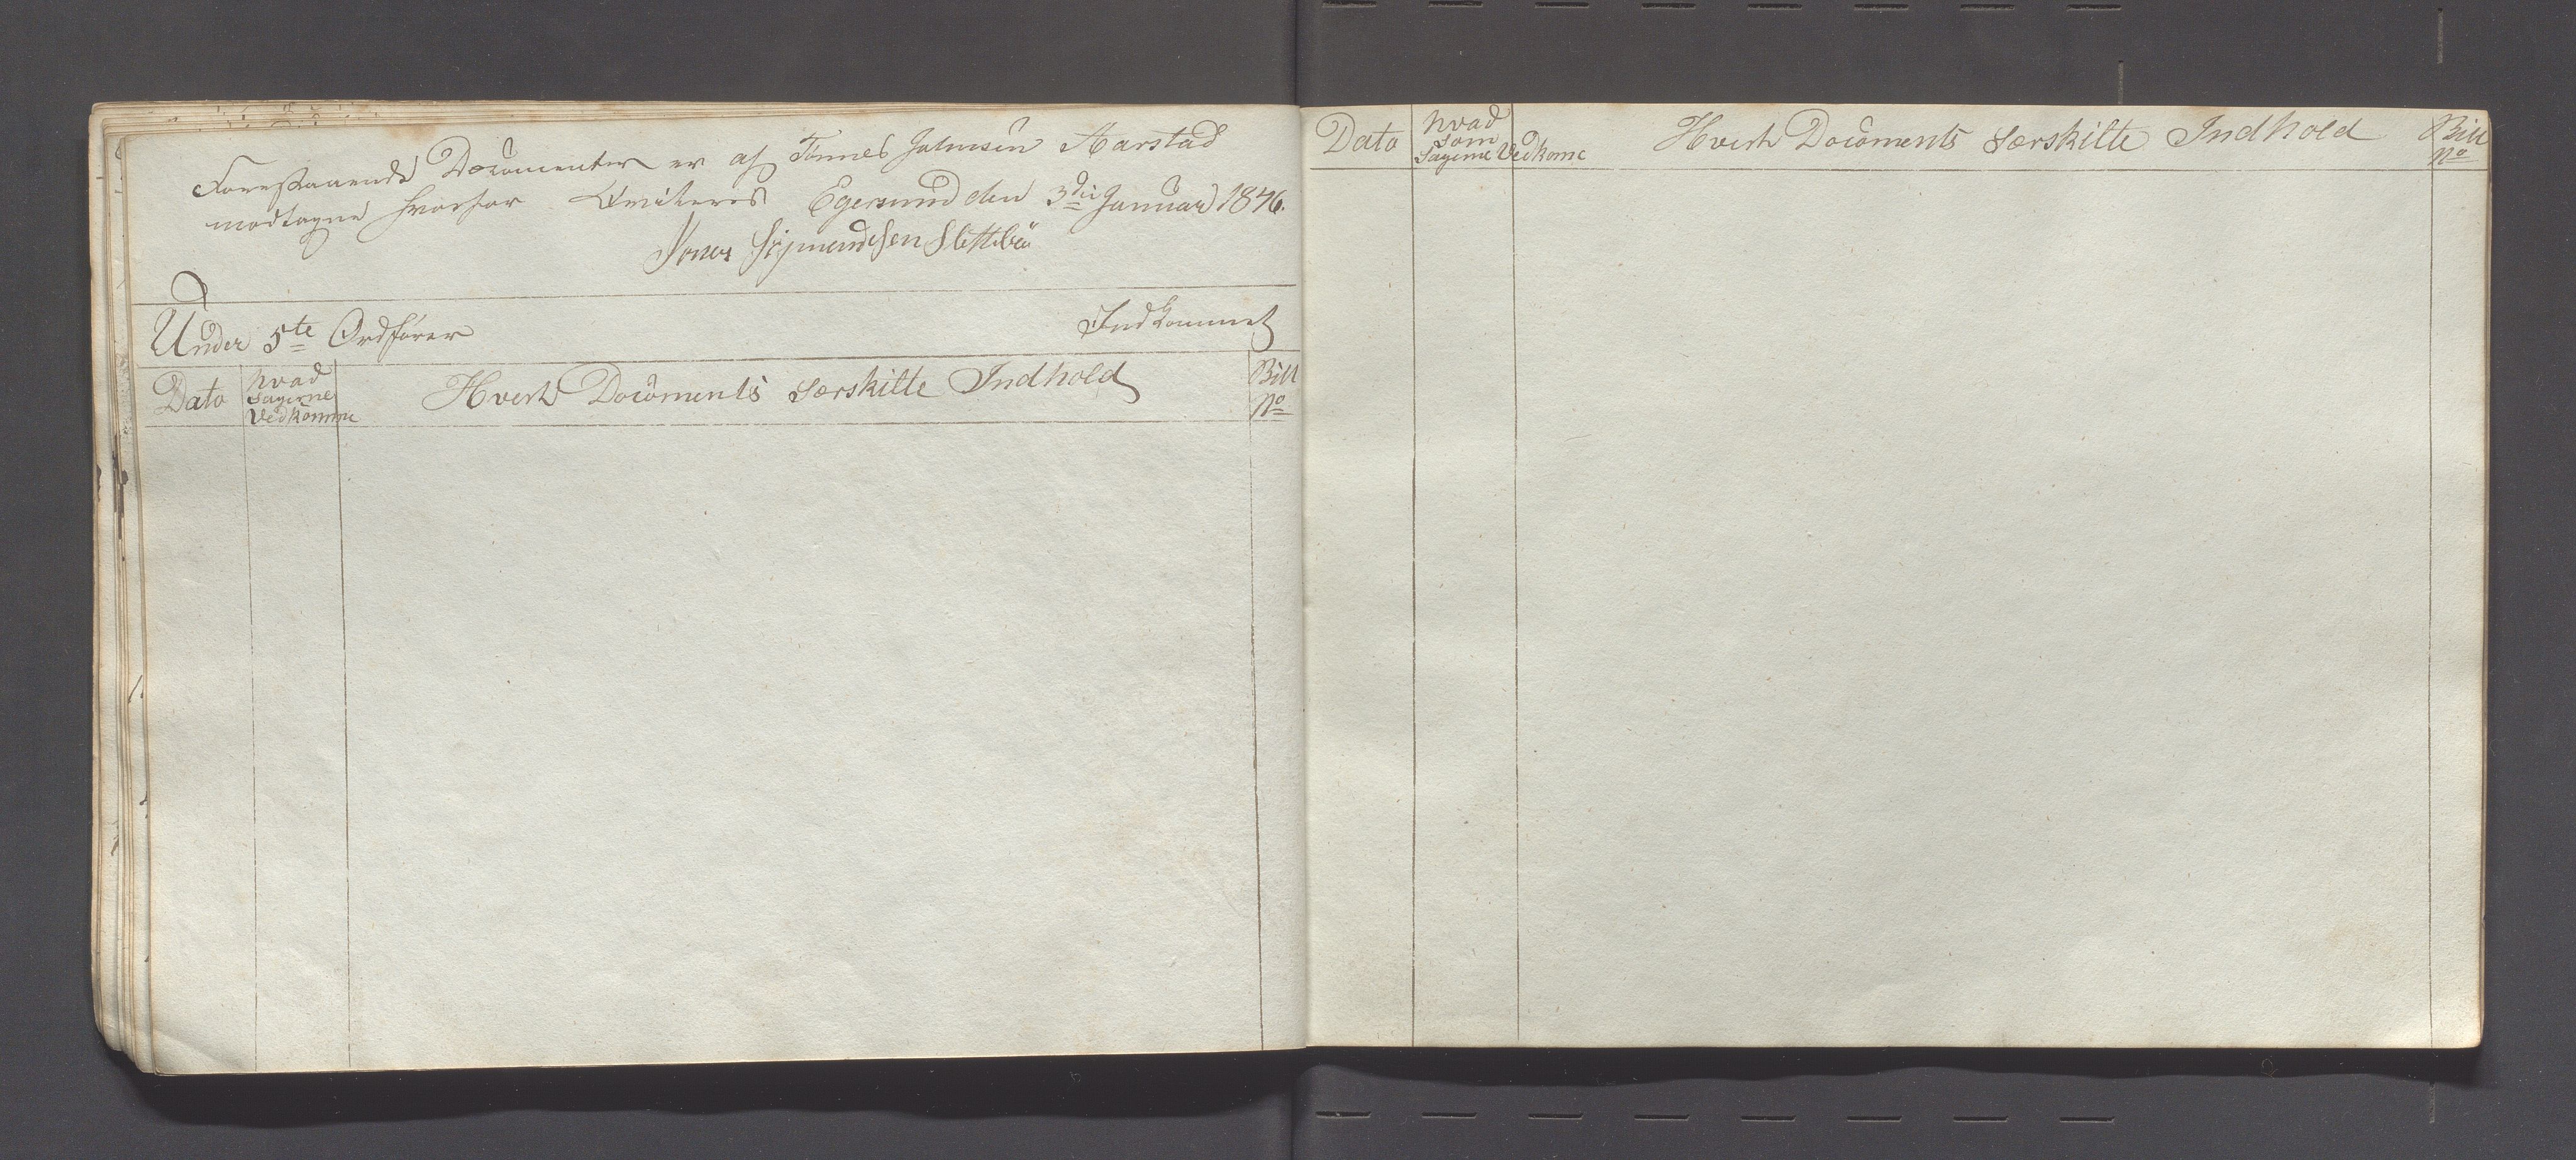 Forestaaende Documenter er af Tønnes Aarstad
modtagne hvorfor Qviteres Egersund den 3die Januar 1846.
Jonas Sigmundsen Slettebø
Under 5te Ordfører Indkommet
Dato hvad Sagerne Vedkomme Hvert Documents særskilte Indhold Bill No
Dato hvad som Sagerne Vedkome Hvert Documents særskilte Indhold Bill No